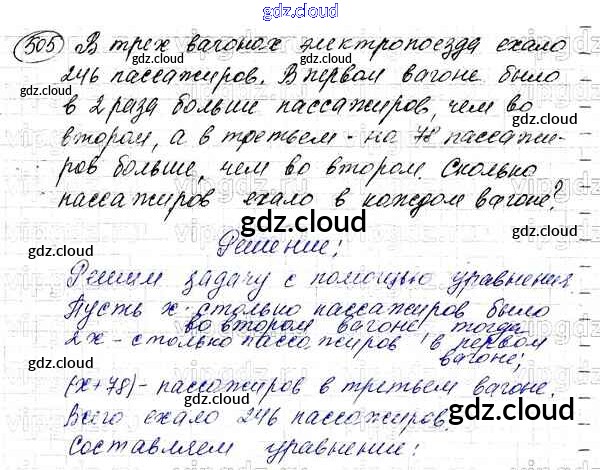 gdz.cloud
505 В трех вагонах электропоезда ехало
246 пассажиров. В первом вагоне было
в 2 раза больше пассажиров, чем во
втором, а в третьем - на 78 пассажи-
ров больше, чем во втором. Сколько
пассажиров ехало в каждом вагоне?
gdz.cloud
Решение:
Решим задачу с помощью уравнения.
Пусть x - столько пассажиров было
во втором вагоне, тогда
2x - столько пассажиров в первом
вагоне;
(x+78) - пассажиров в третьем вагоне.
Всего ехало 246 пассажиров.
Составляем уравнение: